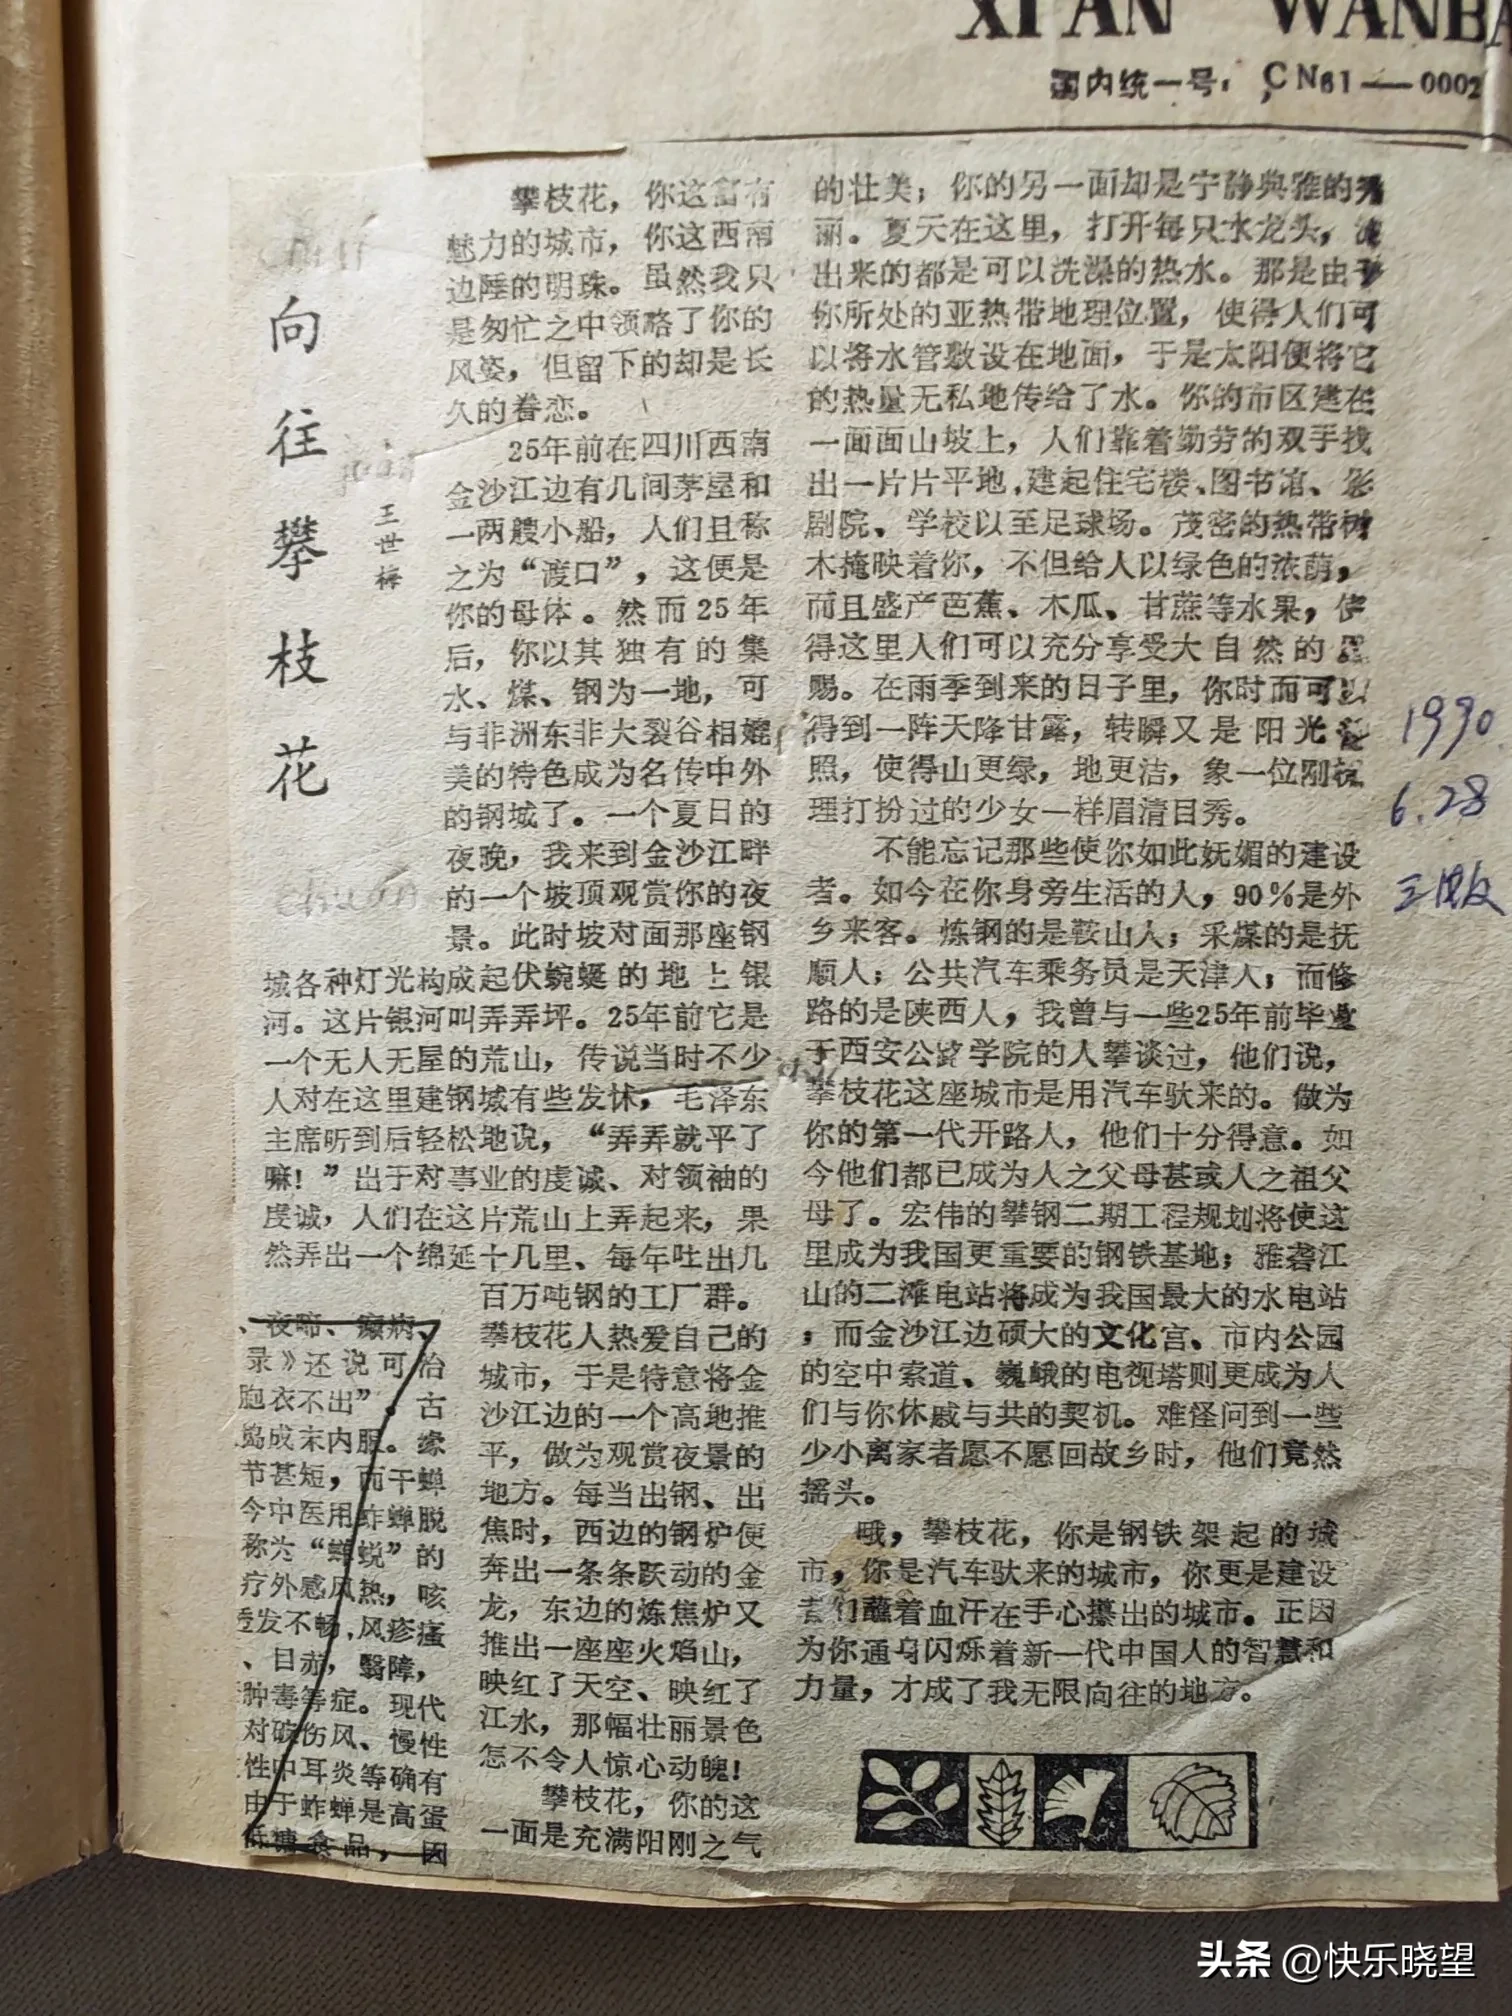 XI'AN WANBA
国内统一号：CN61—0002
向往攀枝花
王世梅
攀枝花，你这富有
魅力的城市，你这西南
边陲的明珠。虽然我只
是匆忙之中领略了你的
风姿，但留下的却是长
久的眷恋。
25年前在四川西南
金沙江边有几间茅屋和
一两艘小船，人们且称
之为“渡口”，这便是
你的母体。然而25年
后，你以其独有的集
水、煤、钢为一地，可
与非洲东非大裂谷相媲
美的特色成为名传中外
的钢城了。一个夏日的
夜晚，我来到金沙江畔
的一个坡顶观赏你的夜
景。此时坡对面那座钢
城各种灯光构成起伏蜿蜒的地上银
河。这片银河叫弄弄坪。25年前它是
一个无人无屋的荒山，传说当时不少
人对在这里建钢城有些发怵，毛泽东
主席听到后轻松地说，“弄弄就平了
嘛！”出于对事业的虔诚、对领袖的
虔诚，人们在这片荒山上弄起来，果
然弄出一个绵延十几里、每年吐出几
百万吨钢的工厂群。
攀枝花人热爱自己的
城市，于是特意将金
沙江边的一个高地推
平，做为观赏夜景的
地方。每当出钢、出
焦时，西边的钢炉便
奔出一条条跃动的金
龙，东边的炼焦炉又
推出一座座火焰山，
映红了天空、映红了
江水，那幅壮丽景色
怎不令人惊心动魄！
攀枝花，你的这
一面是充满阳刚之气
的壮美；你的另一面却是宁静典雅的秀
丽。夏天在这里，打开每只水龙头，流
出来的都是可以洗澡的热水。那是由于
你所处的亚热带地理位置，使得人们可
以将水管敷设在地面，于是太阳便将它
的热量无私地传给了水。你的市区建在
一面面山坡上，人们靠着勤劳的双手找
出一片片平地，建起住宅楼、图书馆、影
剧院、学校以至足球场。茂密的热带树
木掩映着你，不但给人以绿色的浓荫，
而且盛产芭蕉、木瓜、甘蔗等水果，使
得这里人们可以充分享受大自然的恩
赐。在雨季到来的日子里，你时而可以
得到一阵天降甘露，转瞬又是阳光
照，使得山更绿，地更洁，象一位刚梳
理打扮过的少女一样眉清目秀。
不能忘记那些使你如此妩媚的建设
者。如今在你身旁生活的人，90%是外
乡来客。炼钢的是鞍山人；采煤的是抚
顺人；公共汽车乘务员是天津人；而修
路的是陕西人，我曾与一些25年前毕业
于西安公路学院的人攀谈过，他们说，
攀枝花这座城市是用汽车驮来的。做为
你的第一代开路人，他们十分得意。如
今他们都已成为人之父母甚或人之祖父
母了。宏伟的攀钢二期工程规划将使这
里成为我国更重要的钢铁基地；雅砻江
山的二滩电站将成为我国最大的水电站
；而金沙江边硕大的文化宫、市内公园
的空中索道、巍峨的电视塔则更成为人
们与你休戚与共的契机。难怪问到一些
少小离家者愿不愿回故乡时，他们竟然
摇头。
哦，攀枝花，你是钢铁架起的城
市，你是汽车驮来的城市，你更是建设
者们蘸着血汗在手心攥出的城市。正因
为你通身闪烁着新一代中国人的智慧和
力量，才成了我无限向往的地方。
、夜啼、癫病、
录》还说可治
胞衣不出”。古
捣成末内服。缘
节甚短，而干蝉
今中医用蚱蝉脱
称为“蝉蜕”的
疗外感风热，咳
发不畅，风疹瘙
、目赤，翳障，
肿毒等症。现代
对破伤风、慢性
性中耳炎等确有
由于蚱蝉是高蛋
低糖食品，因
1990
6.28
三版
chuān
头条 @快乐晓望